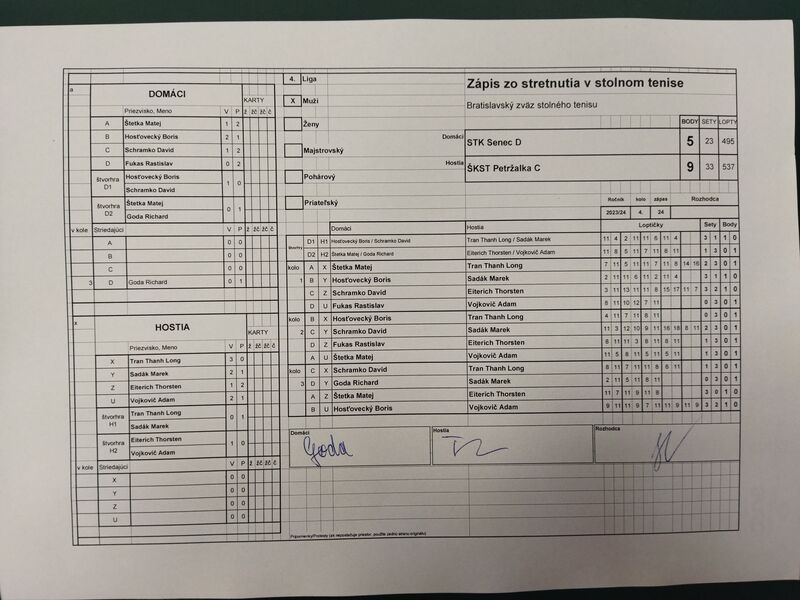 4. Liga
Zápis zo stretnutia v stolnom tenise
X Muži
Bratislavský zväz stolného tenisu
Ženy
BODY SETY LOPTY
Majstrovský
Domáci STK Senec D 5 23 495
Pohárový
Hostia ŠKST Petržalka C 9 33 537
Priateľský
Ročník kolo zápas Rozhodca
2023/24 4. 24
a
DOMÁCI
KARTY
Priezvisko, Meno V P ž žč žč č
A Štetka Matej 1 2
B Hosťovecký Boris 2 1
C Schramko David 1 2
D Fukas Rastislav 0 2
štvorhra D1 Hosťovecký Boris 1 0
Schramko David
štvorhra D2 Štetka Matej 0 1
Goda Richard
v kole Striedajúci V P ž žč žč č
A 0 0
B 0 0
C 0 0
3 D Goda Richard 0 1
x
HOSTIA
KARTY
Priezvisko, Meno V P ž žč žč č
X Tran Thanh Long 3 0
Y Sadák Marek 2 1
Z Eiterich Thorsten 1 2
U Vojkovič Adam 2 1
štvorhra H1 Tran Thanh Long 0 1
Sadák Marek
štvorhra H2 Eiterich Thorsten 1 0
Vojkovič Adam
v kole Striedajúci V P ž žč žč č
X 0 0
Y 0 0
Z 0 0
U 0 0
Domáci Hostia Loptičky Sety Body
štvorhry D1 H1 Hosťovecký Boris / Schramko David Tran Thanh Long / Sadák Marek 11 4 2 11 11 6 11 4 3 1 1 0
D2 H2 Štetka Matej / Goda Richard Eiterich Thorsten / Vojkovič Adam 11 8 5 11 7 11 8 11 1 3 0 1
kolo A X Štetka Matej Tran Thanh Long 7 11 5 11 11 7 11 8 14 16 2 3 0 1
1 B Y Hosťovecký Boris Sadák Marek 2 11 11 6 11 2 11 4 3 1 1 0
C Z Schramko David Eiterich Thorsten 3 11 13 11 11 8 15 17 11 7 3 2 1 0
D U Fukas Rastislav Vojkovič Adam 8 11 10 12 7 11 0 3 0 1
kolo B X Hosťovecký Boris Tran Thanh Long 4 11 7 11 8 11 0 3 0 1
2 C Y Schramko David Sadák Marek 11 3 12 10 9 11 16 18 8 11 2 3 0 1
D Z Fukas Rastislav Eiterich Thorsten 8 11 11 3 8 11 8 11 1 3 0 1
A U Štetka Matej Vojkovič Adam 11 5 8 11 5 11 5 11 1 3 0 1
kolo C X Schramko David Tran Thanh Long 8 11 7 11 8 11 1 3 0 1
3 D Y Goda Richard Sadák Marek 2 11 5 11 8 11 0 3 0 1
A Z Štetka Matej Eiterich Thorsten 11 7 11 9 11 8 3 0 1 0
B U Hosťovecký Boris Vojkovič Adam 9 11 11 9 7 11 11 9 11 9 3 2 1 0
Domáci Hostia Rozhodca
Goda
Pripomienky/Protesty (ak nepostačuje priestor, použite zadnú stranu originálu)